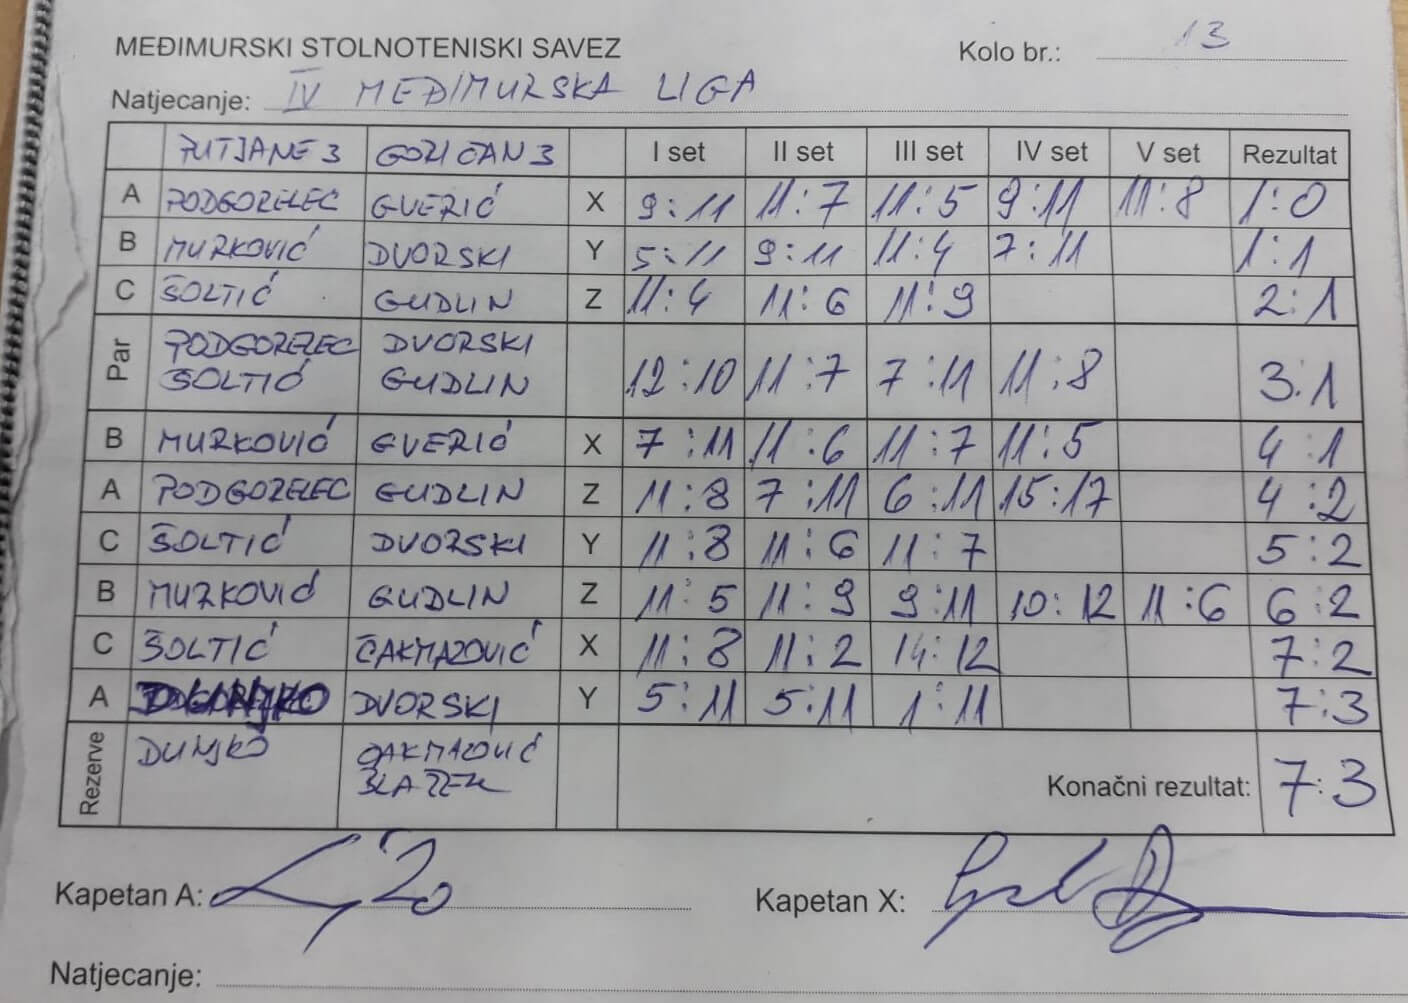 MEĐIMURSKI STOLNOTENISKI SAVEZ Kolo br.: 13
Natjecanje: IV MEĐIMURSKA LIGA
PUTJANE 3 GORIČAN 3 I set II set III set IV set V set Rezultat
A PODGORELEC GVERIĆ X 9:11 11:7 11:5 9:11 11:8 1:0
B MURKOVIĆ DVORSKI Y 5:11 9:11 11:4 7:11 1:1
C ŠOLTIĆ GUDLIN Z 11:4 11:6 11:9 2:1
Par PODGORELEC DVORSKI
ŠOLTIĆ GUDLIN 12:10 11:7 7:11 11:8 3:1
B MURKOVIĆ GVERIĆ X 7:11 11:6 11:7 11:5 4:1
A PODGORELEC GUDLIN Z 11:8 7:11 6:11 15:17 4:2
C ŠOLTIĆ DVORSKI Y 11:8 11:6 11:7 5:2
B MURKOVIĆ GUDLIN Z 11:5 11:9 9:11 10:12 11:6 6:2
C ŠOLTIĆ ČAKMAZOVIĆ X 11:8 11:2 14:12 7:2
A DUNJKO DVORSKI Y 5:11 5:11 1:11 7:3
Rezerve DUNJKO ČAKMAZOVIĆ
BLAŽEK
Konačni rezultat: 7:3
Kapetan A: Kapetan X:
Natjecanje: